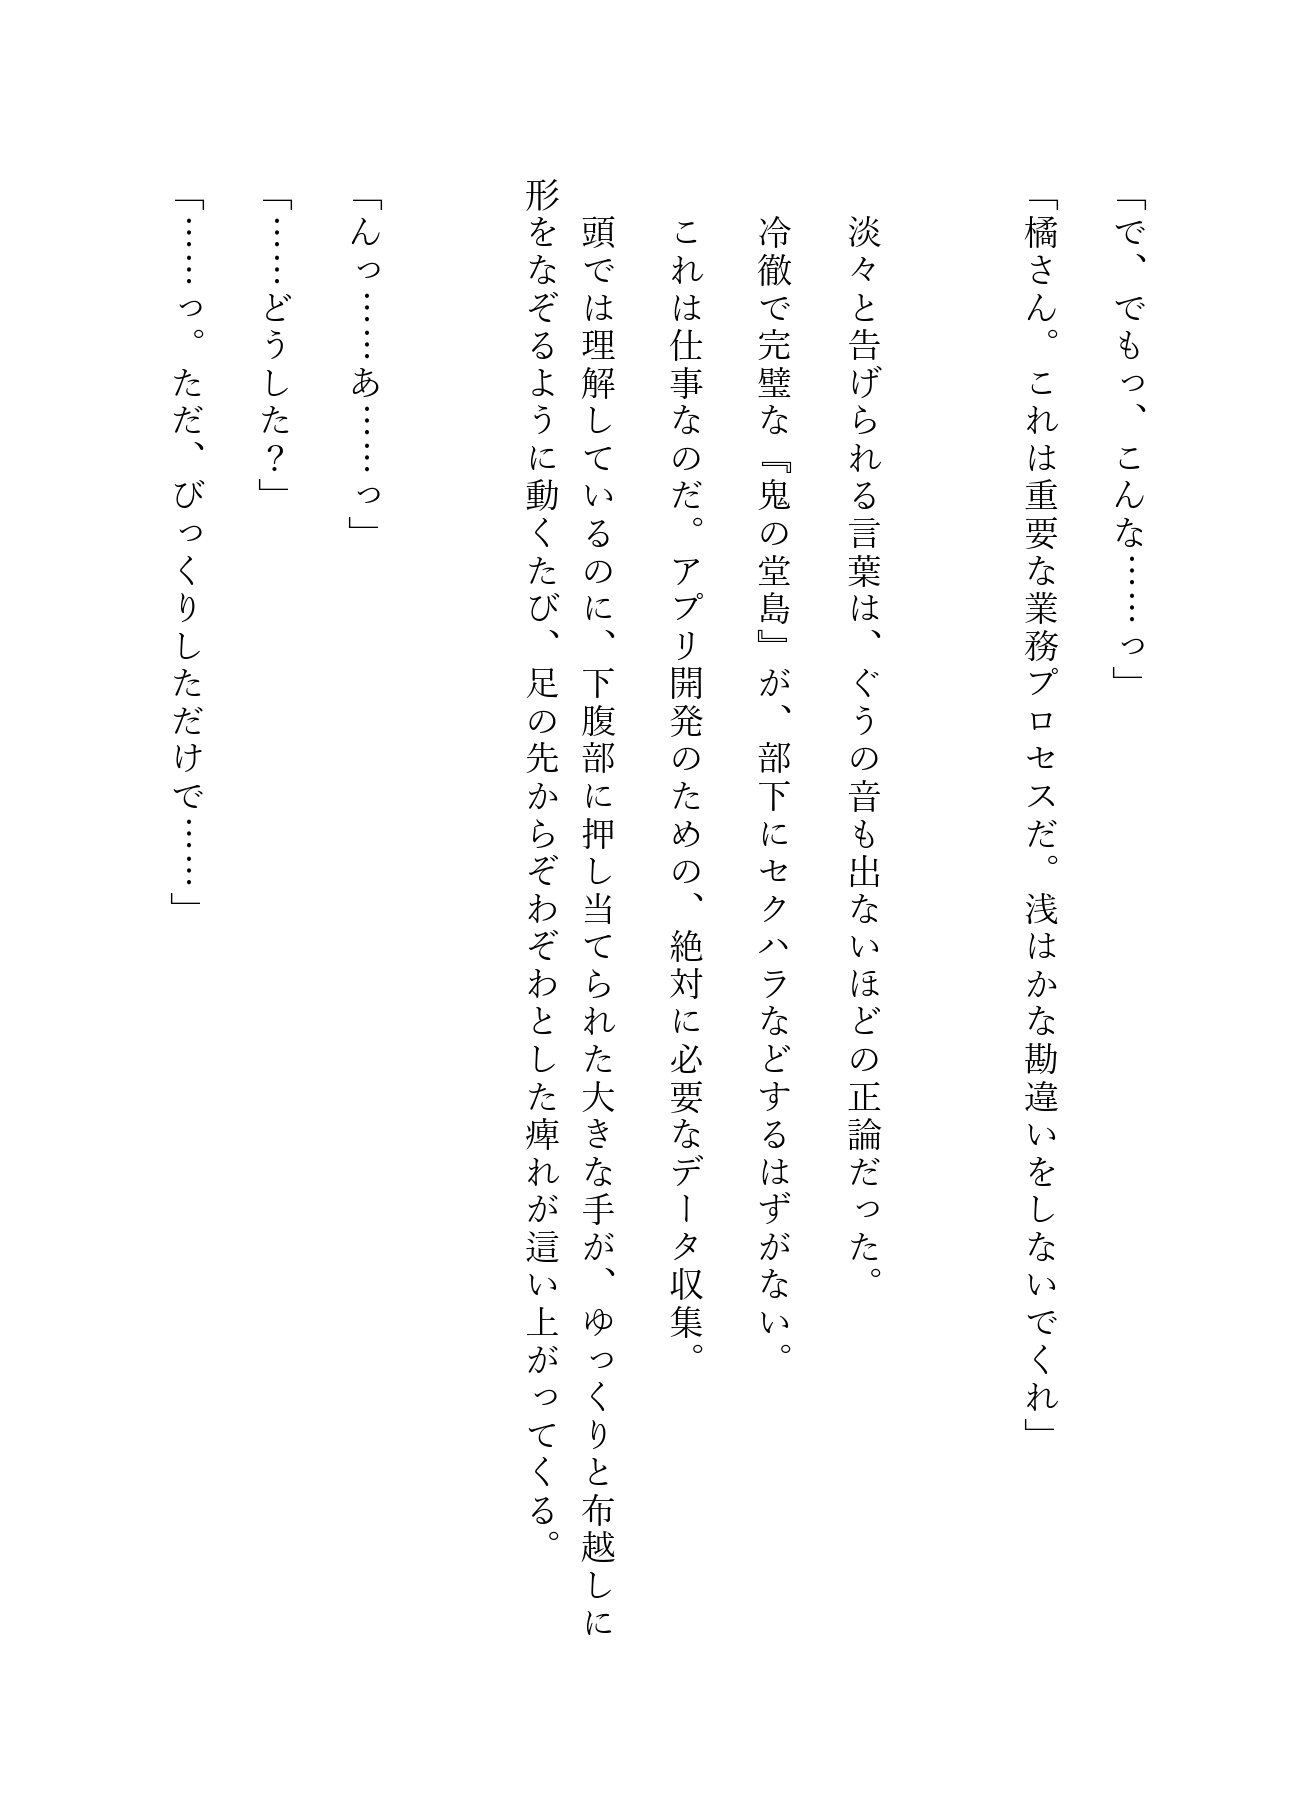 「で、でもっ、こんな……っ」
「橘さん。これは重要な業務プロセスだ。浅はかな勘違いをしないでくれ」
淡々と告げられる言葉は、ぐうの音も出ないほどの正論だった。
冷徹で完璧な『鬼の堂島』が、部下にセクハラなどするはずがない。
これは仕事なのだ。アプリ開発のための、絶対に必要なデータ収集。
頭では理解しているのに、下腹部に押し当てられた大きな手が、ゆっくりと布越しに
形をなぞるように動くたび、足の先からぞわぞわとした痺れが這い上がってくる。
「んっ……あ……っ」
「……どうした?」
「……っ。ただ、びっくりしただけで……」